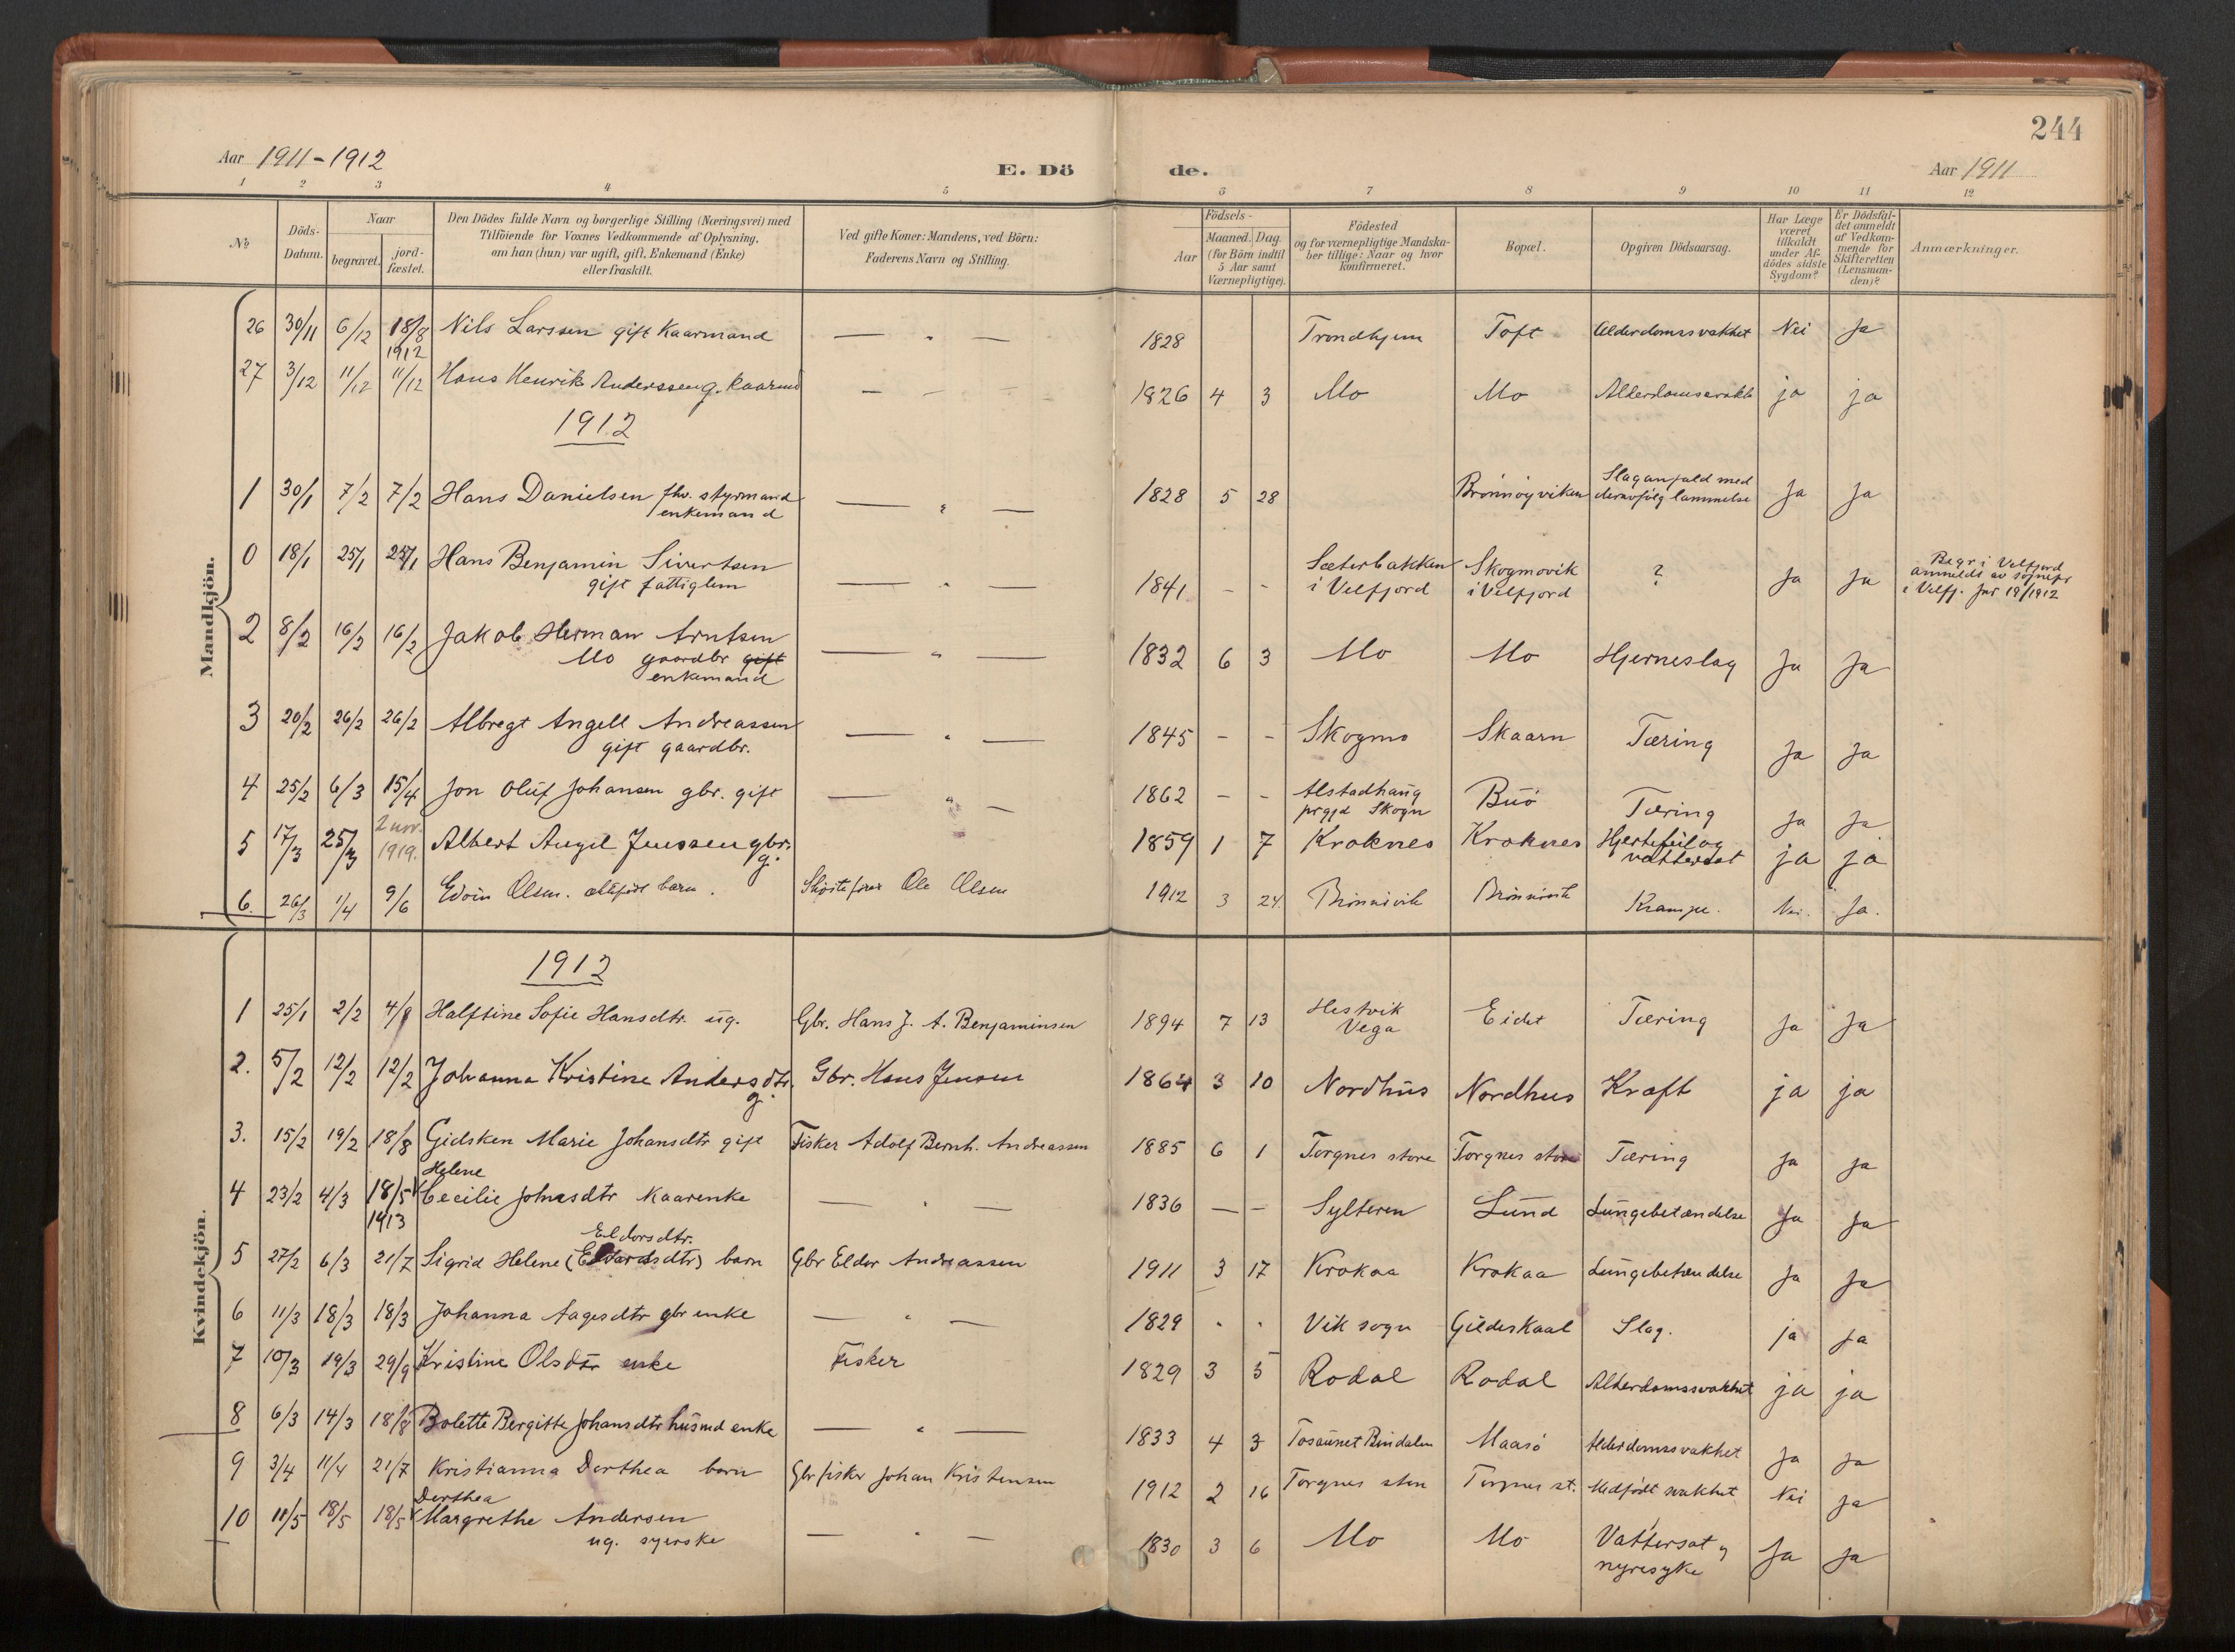 244
Aar 1911-1912
E. Dö
de.
Aar 1911
1 2 3 4 5 6 7 8 9 10 11 12
№
Döds-Datum.
Naar
begravet.
jord-fæstet.
Den Dödes fulde Navn og borgerlige Stilling (Næringsvei) med
Tilföiende for Voxnes Vedkommende af Oplysning,
om han (hun) var ugift, gift, Enkemand (Enke)
eller fraskilt.
Ved gifte Koner: Mandens, ved Börn:
Faderens Navn og Stilling.
Födsels-
Aar
Maaned. Dag.
(for Börn indtil
5 Aar samt
Værnepligtige).
Födested
og for værnepligtige Mandska-
ber tillige: Naar og hvor
konfirmeret.
Bopæl.
Opgiven Dödsaarsag.
Har Læge
været
tilkaldt
under Af-
dödes sidste
Sygdom?
Er Dödsfal-
det anmeldt
af Vedkom-
mende for
Skifteretten
(Lensman-
den)?
Anmærkninger.
Mandkjön.
26 30/11 6/12 18/8 1912 Nils Larssen gift Kaarmand — " — 1828 Trondhjem Toft Alderdomssvakhet Nei Ja
27 3/12 11/12 11/12 Hans Henrik Anderssen g. kaarmd — - - 1826 4 3 Mo Mo Alderdomssvakh ja ja
1912
1 30/1 7/2 7/2 Hans Danielsen fhv. styrmand — " — 1828 5 28 Brönnöyviken Slaganfald med Ja Ja
enkemand deravfølg lammelse
0 18/1 25/1 25/1 Hans Benjamin Sivertsen — " — 1841 - - Sæterbakken Skogmovik ? Ja Ja Begr i Velfjord
gift fattiglem i Velfjord i Velfjord anmeldt av sognepr
i Velfj. Jnr 19/1912
2 8/2 16/2 16/2 Jakob Herman Arntsen — " — 1832 6 3 Mo Mo Hjerneslag Ja Ja
Mo gaardbr gift
enkemand
3 20/2 26/2 26/2 Albregt Angell Andreassen — " — 1845 - - Skogmo Skaarn Tæring Ja Ja
gift gaardbr.
4 25/2 6/3 15/4 Jon Oluf Johansen gbr. gift — " — 1862 - - Alstadhaug Buö Tæring Ja Ja
prgjd Skogn
5 17/3 25/3 2 nov. 1919. Albert Angel Jenssen gbr. g. 1859 1 7 Kroknes Kroknes Hjertefeil og ja ja
vattersot
6. 26/3 1/4 9/6 Edvin Olsen. barn. Ole Olsen 1912 3 24. Brönnövik Brönnövik Krampe. Nei. Ja.
Kvindekjön.
1912
1 25/1 2/2 4/8 Halftine Sofie Hansdtr. ug. Gbr. Hans J. A. Benjaminsen 1894 7 13 Hestvik Eidet Tæring Ja Ja
Vega
2. 5/2 12/2 12/2 Johanna Kristine Andersdtr. g. Gbr. Hans Jensen 1864 3 10 Nordhus Nordhus Kræft ja ja
3. 15/2 19/2 18/8 Gidsken Marie Johansdtr gift Fisker Adolf Bernh. Andreassen 1885 6 1 Torgnes store Torgnes store Tæring Ja Ja
Helene
4 23/2 4/3 18/5 1913 Cecilie Johnsdtr Kaarenke — " — 1836 — — Sylteren Lund Lungebetændelse Ja Ja
Eldorsdtr.
5 27/2 6/3 21/7 Sigrid Helene (Edvardsdtr) barn Gbr Eldor Andreassen 1911 3 17 Krokaa Krokaa Lungebetændelse Ja Ja
6 11/3 18/3 18/3 Johanna Aagesdtr gbr enke — " — 1829 " " Vik sogn Gildeskaal Slag. ja Ja
7 10/3 19/3 29/9 Kristine Olsdtr enke Fisker 1829 3 5 Rodal Rodal Alderdomssvakhet ja ja
8 6/3 14/3 18/8 Bolette Bergitte Johansdtr husmd enke — " — 1833 4 3 Tosaunet Bindalen Maasö Alderdomssvakhet Ja Ja
9 3/4 11/4 21/7 Kristianna Dorthea barn Gbr fisker Johan Kristensen 1912 2 16 Torgnes store Torgnes st. Medfödt svakhet Nei Ja
Dorthea
10 11/5 18/5 18/5 Margrethe Andersen — " — 1830 3 6 Mo Mo Vattersot og Ja Ja
ug. syerske nyresyke